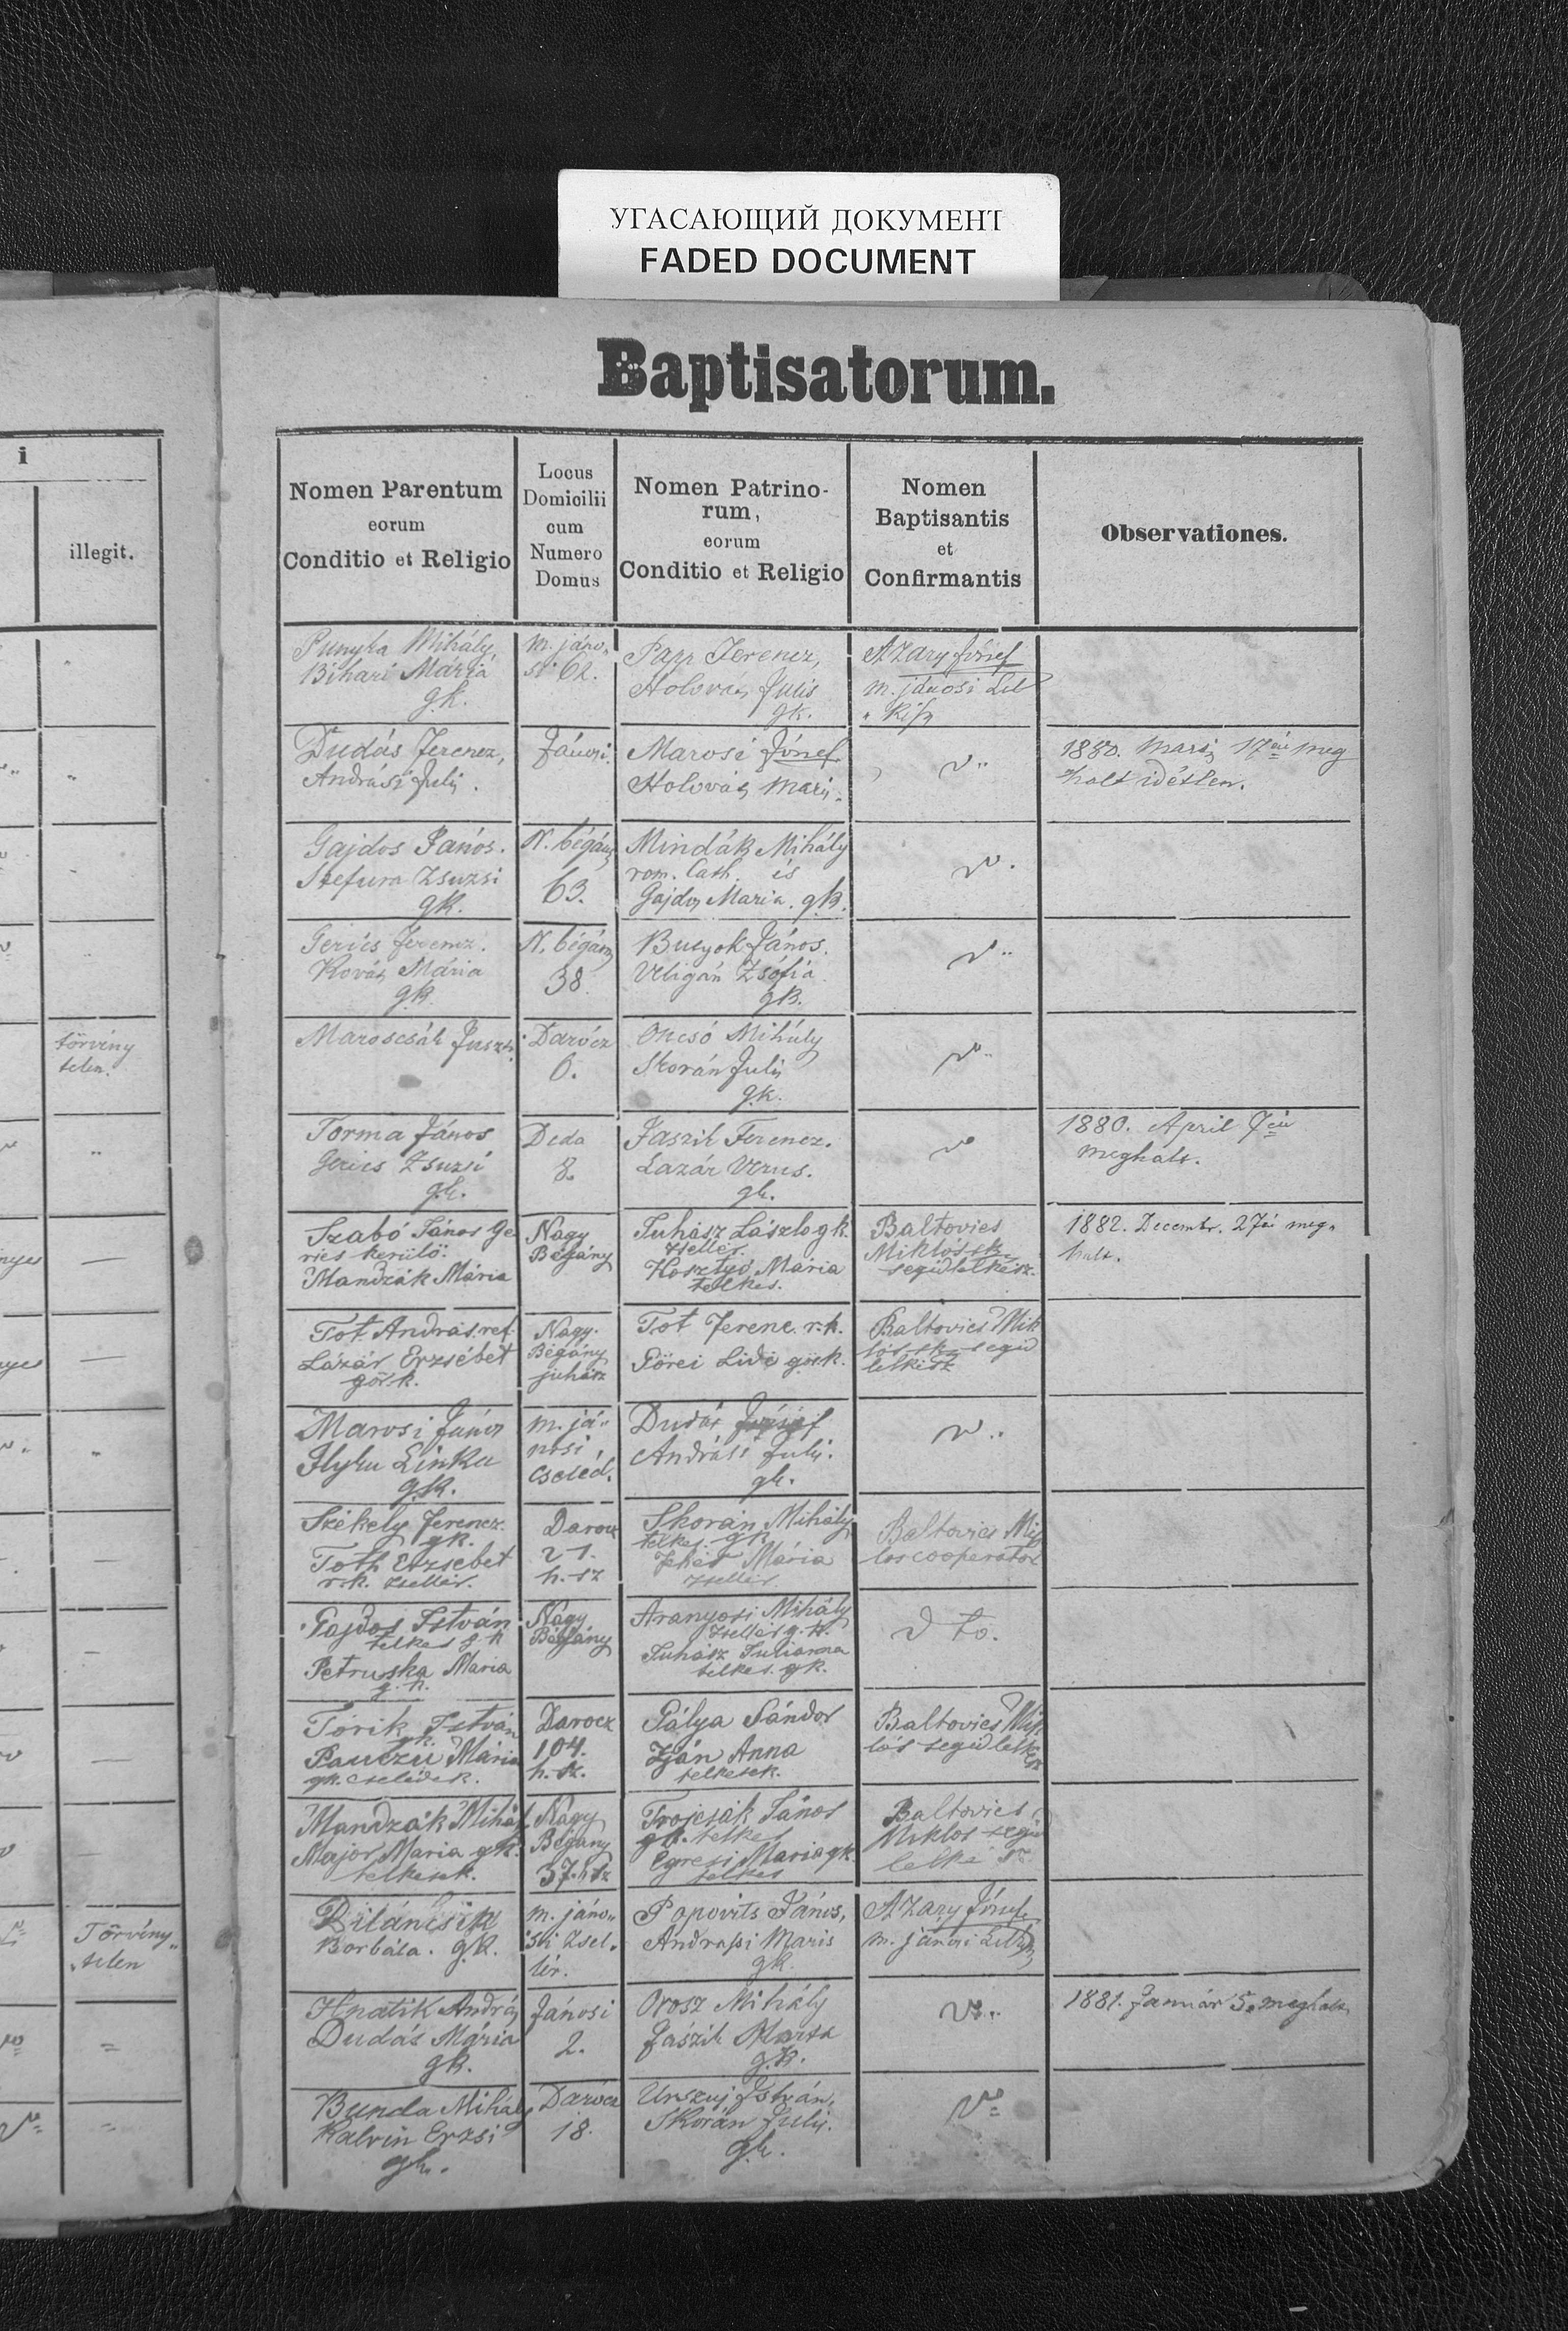 УГАСАЮЩИЙ ДОКУМЕНТ
FADED DOCUMENT
Baptisatorum.
i
illegit.
Nomen Parentum
eorum
Conditio et Religio
Locus
Domicilii
cum
Numero
Domus
Nomen Patrino-
rum,
eorum
Conditio et Religio
Nomen
Baptisantis
et
Confirmantis
Observationes.
Punyka Mihály,
Bihari Mária
gk.
m. jáno-
si 62.
Papp Ferencz,
Holovács Julis
gk.
Azary József
m. jánosi Lel
Dudás Ferencz,
Andrási Julis.
Jánosi.
Marosi József
Holovács Maris.
1880. 17én meg
halt idétlen.
Gajdos János.
Stefura Zsuzsi
gk.
N. bégány
63.
Mindák Mihály
rom. Cath. és
Gajdos Maria. gk.
Gerics Ferencz.
Kovács Mária
gk.
N. bégány
38.
Bucyok János.
Zsófia
gk.
törvény
telen.
Maroscsák
Darócz
6.
Oncsó Mihály
Skorán Julis
gk.
Torma János
Gerics Zsuzsi
gk.
Deda
8.
Jaszik Ferencz.
Lazár Verus.
gk.
1880. April 7én
meghalt.
Szabó János Ge
rics kerülő.
Mandzák Mária
Nagy
Bégány
Juhász László gk.
zsellér.
Hosztyó Mária
telkes.
Baltovics
Miklós sk.
segédlelkész.
1882. Decembr. 27én meg-
halt.
Tót András ref.
Lázár Erzsébet
gör. k.
Nagy.
Bégány
juhász
Tot Ferenc r. k.
Pőrei Lidi gör k.
Baltovics Mik
lós sk. segéd
lelkész
Marosi János
Ilyku Linka
gk.
m. já-
nosi
cseléd.
Dudás József
Andrási Julis.
gk.
Székely Ferencz
gk.
Toth Erzsébet
r. k. zsellér.
Darocz
21.
h. sz
Skorán Mihály
telkes. gk
Fehér Mária
zsellér
Baltovics Mik
los cooperator
Gajdos István
telkes g k
Petruska Maria
g. k.
Nagy
Bégány
Aranyosi Mihály
zsellér g. k.
Juhász Julianna
telkes. gk.
d to.
Törik István
gk.
Mária
gk. cselédek.
Darocz
104.
h. sz.
Pálya Sándor
Iján Anna
telkesek.
Baltovics Mik
lós segédlelkész
Mandzák Mihály
Major Maria gk.
telkesek.
Nagy
Bégány
37. h sz
Trojcsák János
gk. telkes
Egresi Maria gk.
telkes
Baltovics
Miklos segéd
lelkész
Törvény-
telen
Borbála. gk.
m. jáno-
si zsel-
lér.
Popovits János,
Andrássi Maris
gk.
Azary József
m. jánosi
Hnatik András
Dudás Mária
gk.
Jánosi
2.
Orosz Mihály
Jászik Marta
g. k.
1881. Január 5. meghalt.
Bunda Mihály
Kalvin Erzsi
gk.
Darócz
18.
István,
Skorán Julis.
gk.